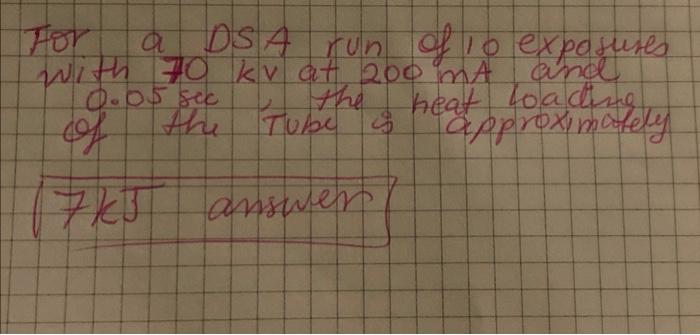 For a DSA run of 10 exposures
with 70 kv at 200 mA and
0.05 sec, the heat loading
of the Tube is approximately
7kJ answer